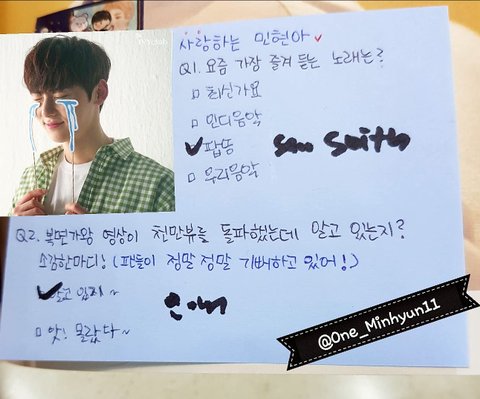 IVYclub
사랑하는 민현아
Q1. 요즘 가장 즐겨 듣는 노래는?
최신가요
인디음악
팝송
Sam Smith
우리음악
Q2. 복면가왕 영상이 천만뷰를 돌파했는데 알고 있는지?
소감한마디! (팬들이 정말 정말 기뻐하고 있어!)
알고 있지~
앗! 몰랐다~
@One_Minhyun11